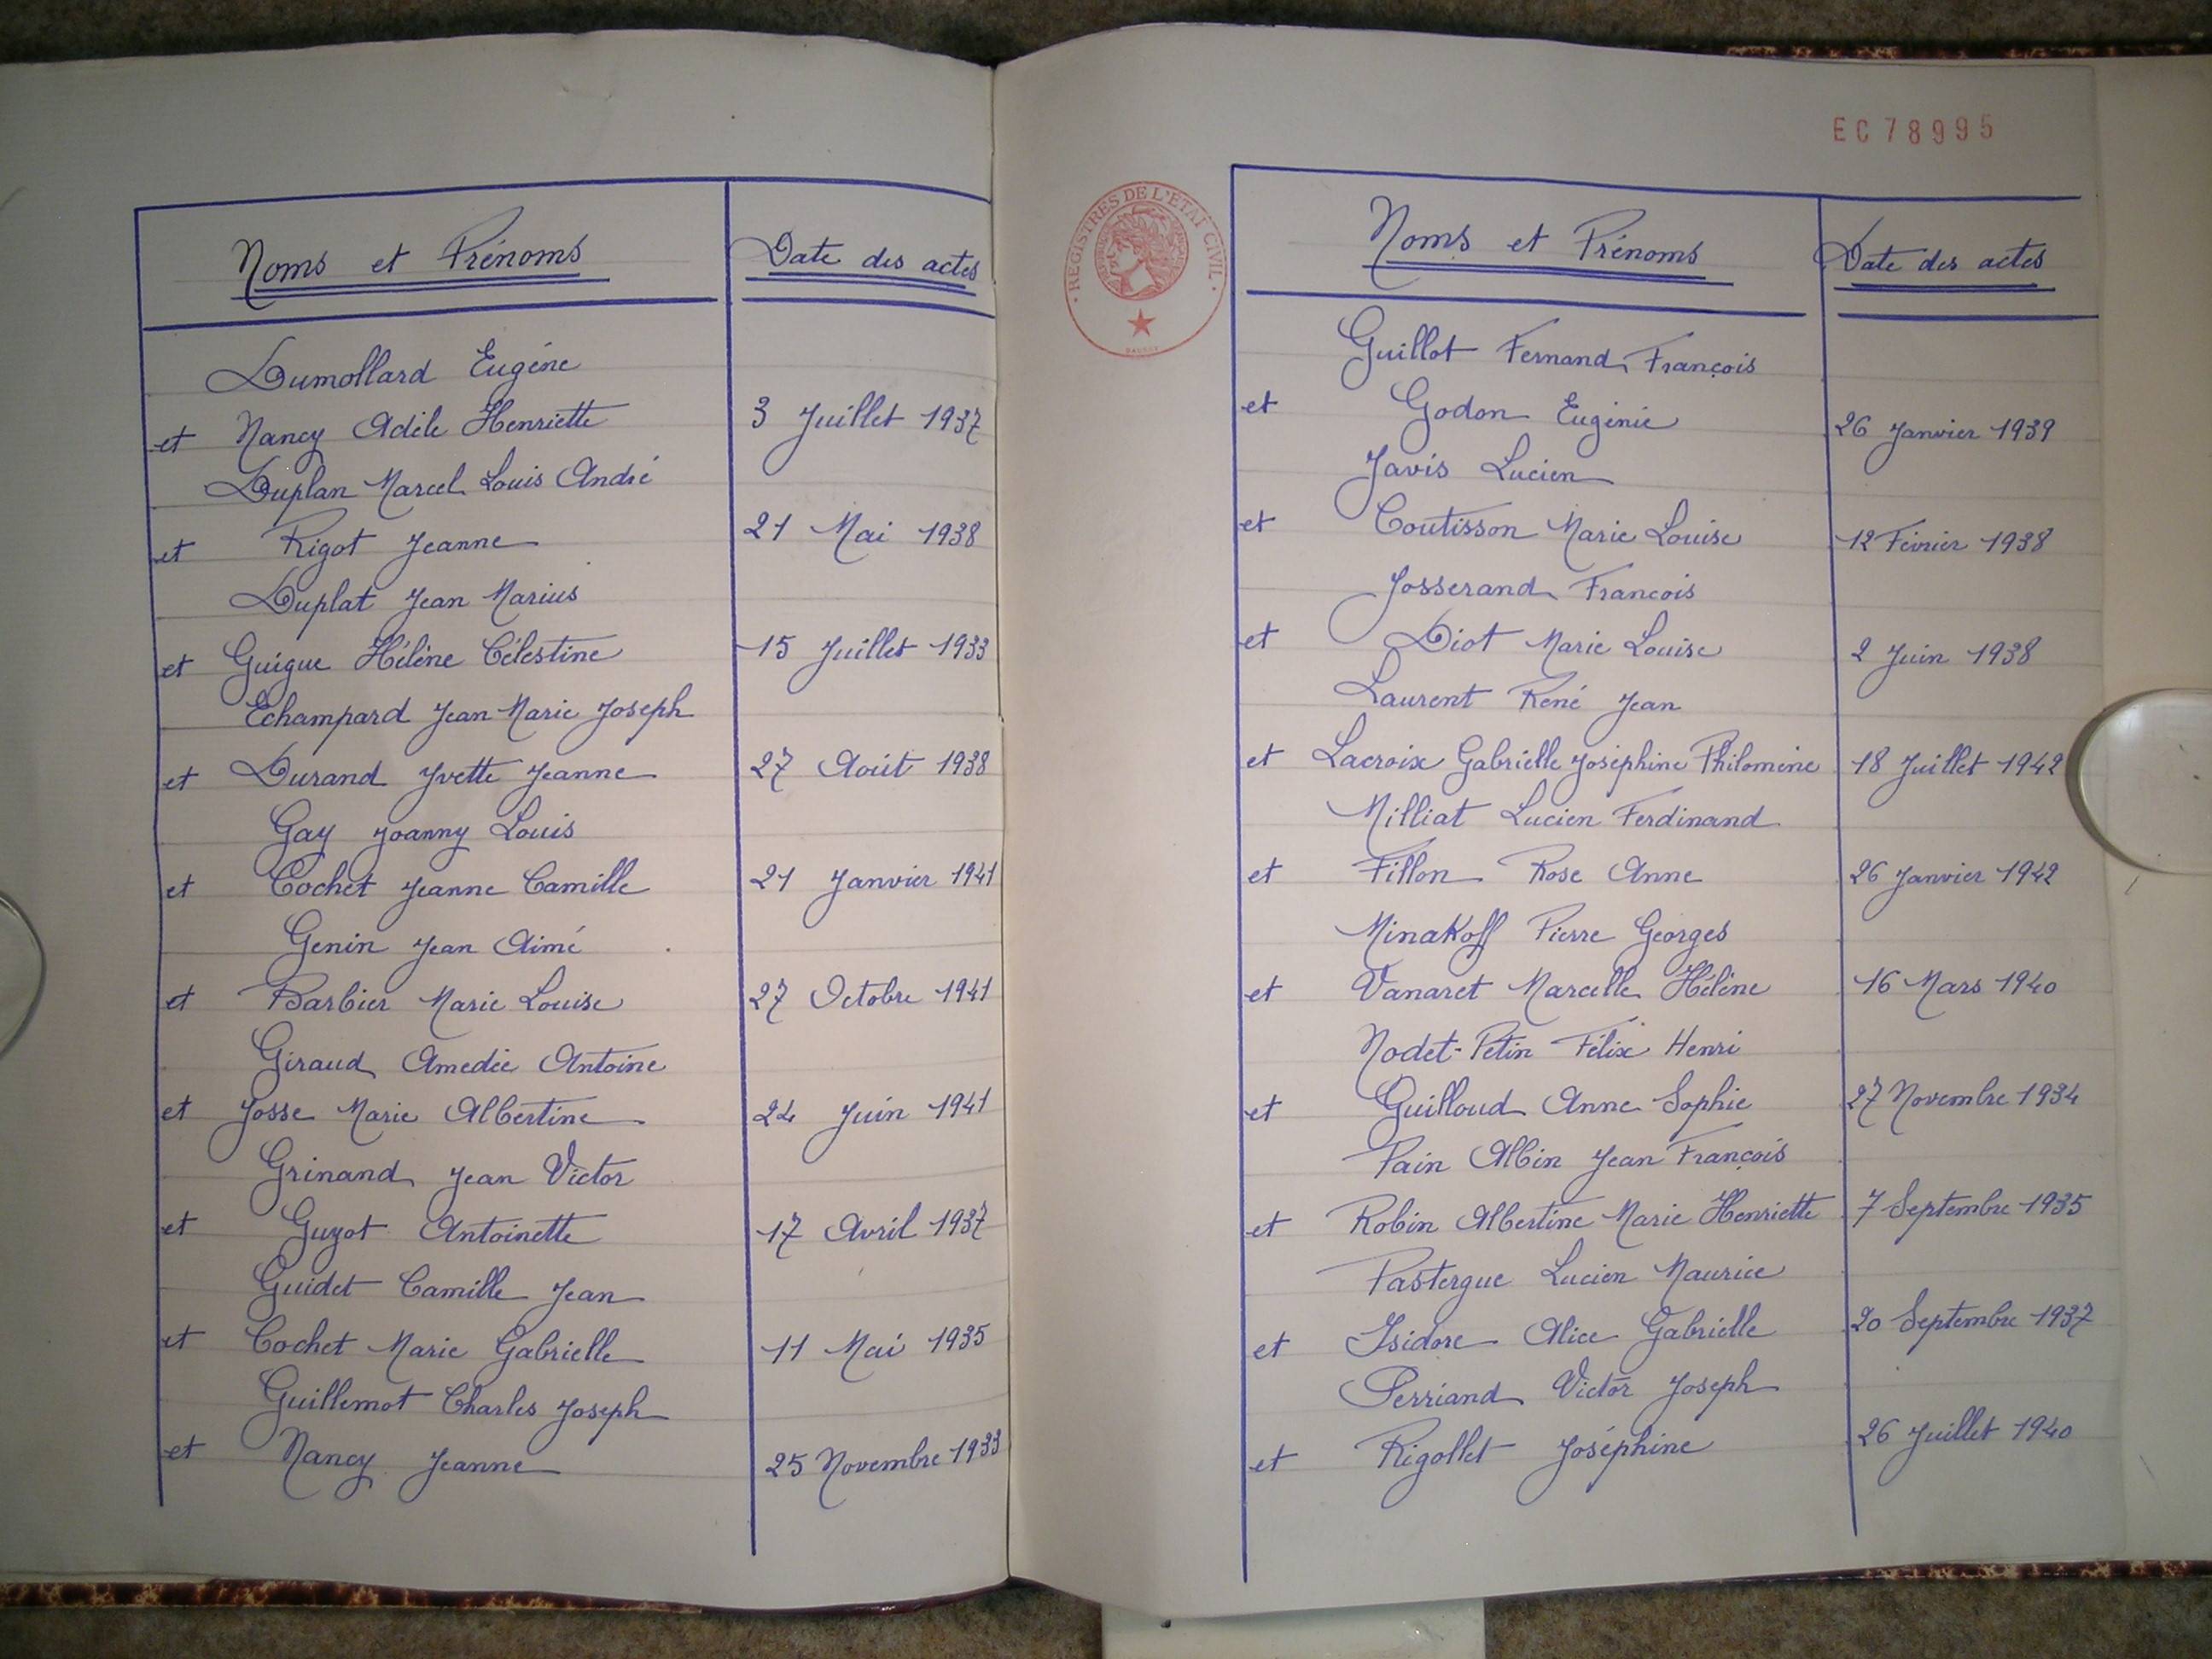 Noms et Prénoms Date des actes
Dumollard Eugène
et Nancy Adèle Henriette 3 Juillet 1937
Duplan Marcel Louis André
et Rigot Jeanne 21 Mai 1938
Duplat Jean Marius
et Guigue Hélène Célestine 15 Juillet 1933
Echampard Jean Marie Joseph
et Durand Yvette Jeanne 27 Août 1938
Gay Joanny Louis
et Cochet Jeanne Camille 21 Janvier 1941
Genin Jean Aimé
et Barbier Marie Louise 27 Octobre 1941
Giraud Amedée Antoine
et Josse Marie Albertine 24 Juin 1941
Grinand Jean Victor
et Guyot Antoinette 17 Avril 1937
Guidet Camille Jean
et Cochet Marie Gabrielle 11 Mai 1935
Guillemot Charles Joseph
et Nancy Jeanne 25 Novembre 1933
EC78995
REGISTRES DE L'ETAT CIVIL
Noms et Prénoms Date des actes
Guillot Fernand François
et Godon Eugènie 26 Janvier 1939
Javis Lucien
et Coutisson Marie Louise 12 Février 1938
Josserand Francois
et Diot Marie Louise 2 Juin 1938
Laurent René Jean
et Lacroix Gabrielle Joséphine Philomène 18 Juillet 1942
Milliat Lucien Ferdinand
et Fillon Rose Anne 26 Janvier 1942
Minakoff Pierre Georges
et Vanaret Marcelle Hélène 16 Mars 1940
Nodet-Petin Félix Henri
et Guilloud Anne Sophie 27 Novembre 1934
Pain Albin Jean François
et Robin Albertine Marie Henriette 7 Septembre 1935
Pastergue Lucien Maurice
et Isidore Alice Gabrielle 20 Septembre 1937
Perriand Victor Joseph
et Rigollet Joséphine 26 Juillet 1940